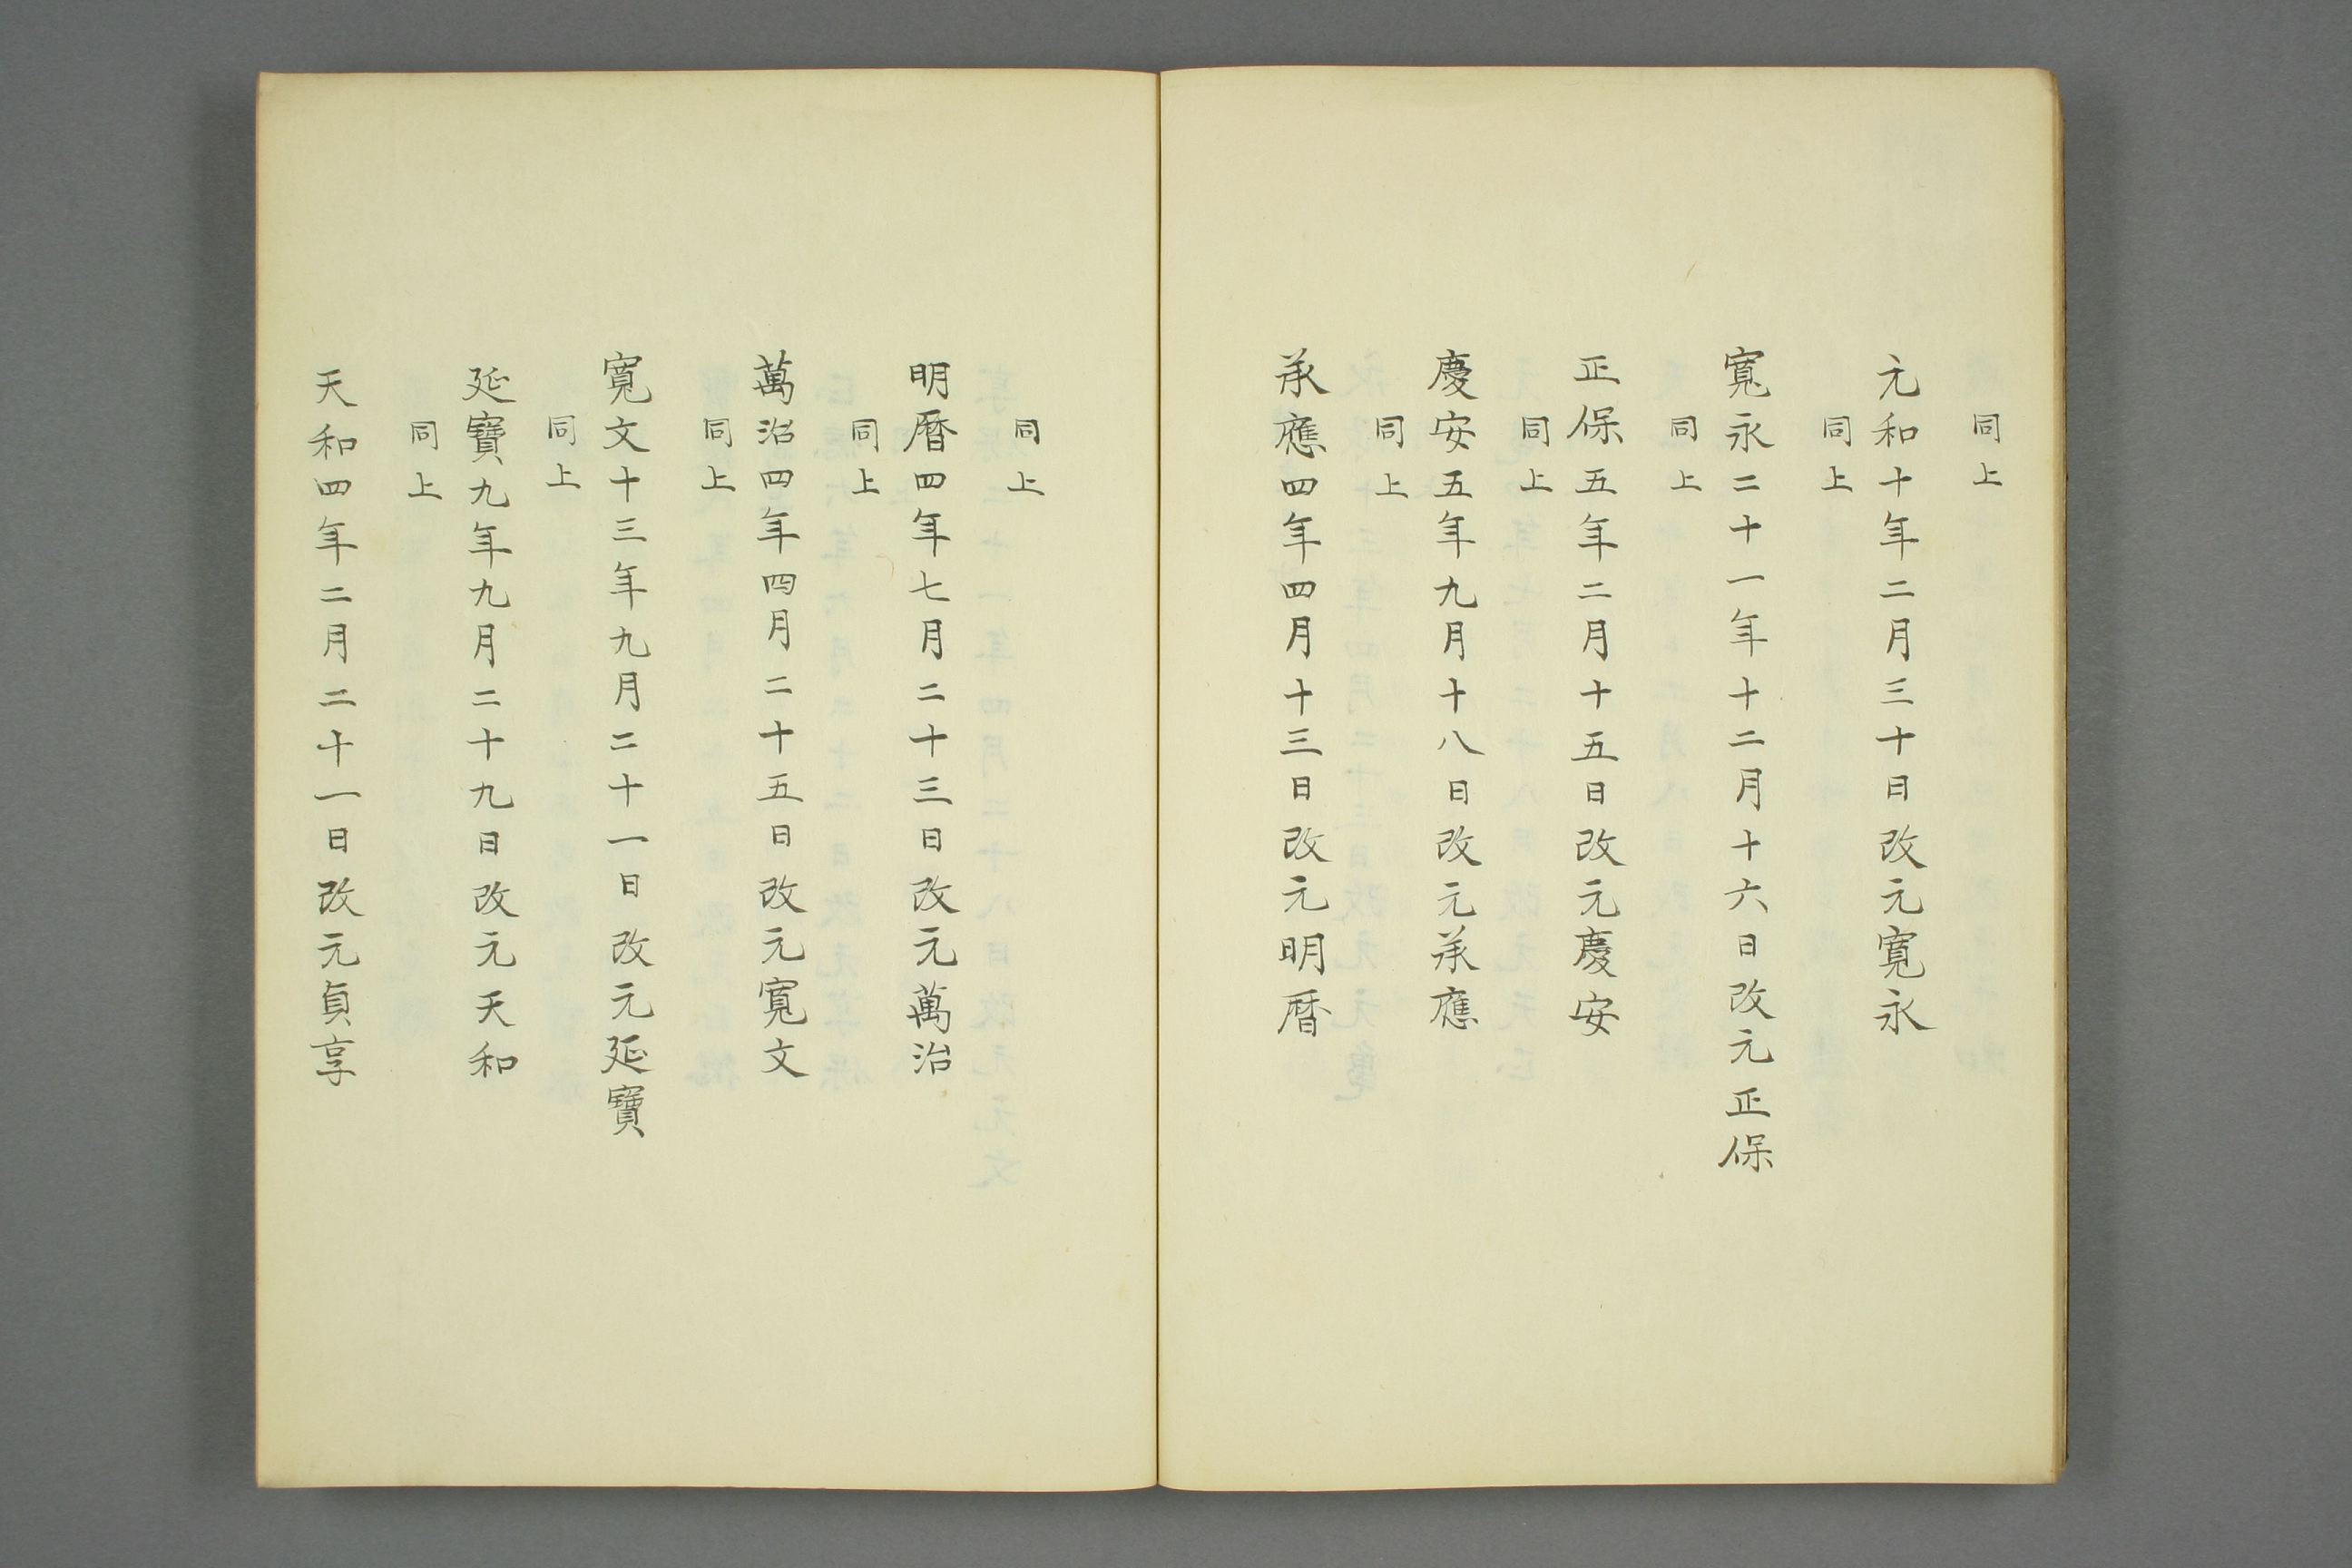 同上
元和十年二月三十日改元寛永
同上
寛永二十一年十二月十六日改元正保
同上
正保五年二月十五日改元慶安
同上
慶安五年九月十八日改元承應
同上
承應四年四月十三日改元明暦
同上
明暦四年七月二十三日改元萬治
同上
萬治四年四月二十五日改元寛文
同上
寛文十三年九月二十一日改元延寶
同上
延寶九年九月二十九日改元天和
同上
天和四年二月二十一日改元貞享